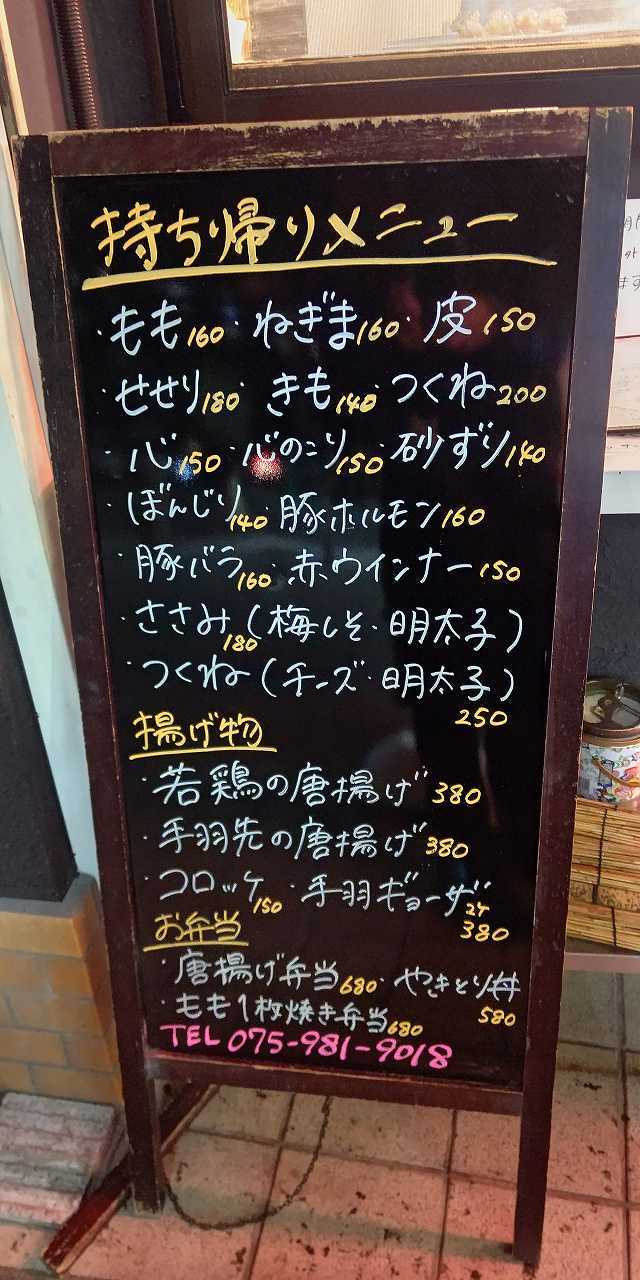 持ち帰りメニュー
・もも160・ねぎま160・皮150
・せせり180・きも140・つくね200
・心150・心のこり150・砂ずり140
・ぼんじり140・豚ホルモン160
・豚バラ160・赤ウインナー150
・ささみ180(梅しそ・明太子)
・つくね(チーズ・明太子)
250
揚げ物
・若鶏の唐揚げ380
・手羽先の唐揚げ380
・コロッケ150・手羽ギョーザ2ケ
380
お弁当
・唐揚げ弁当680・やきとり丼
580
・もも1枚焼き弁当680
TEL 075-981-9018